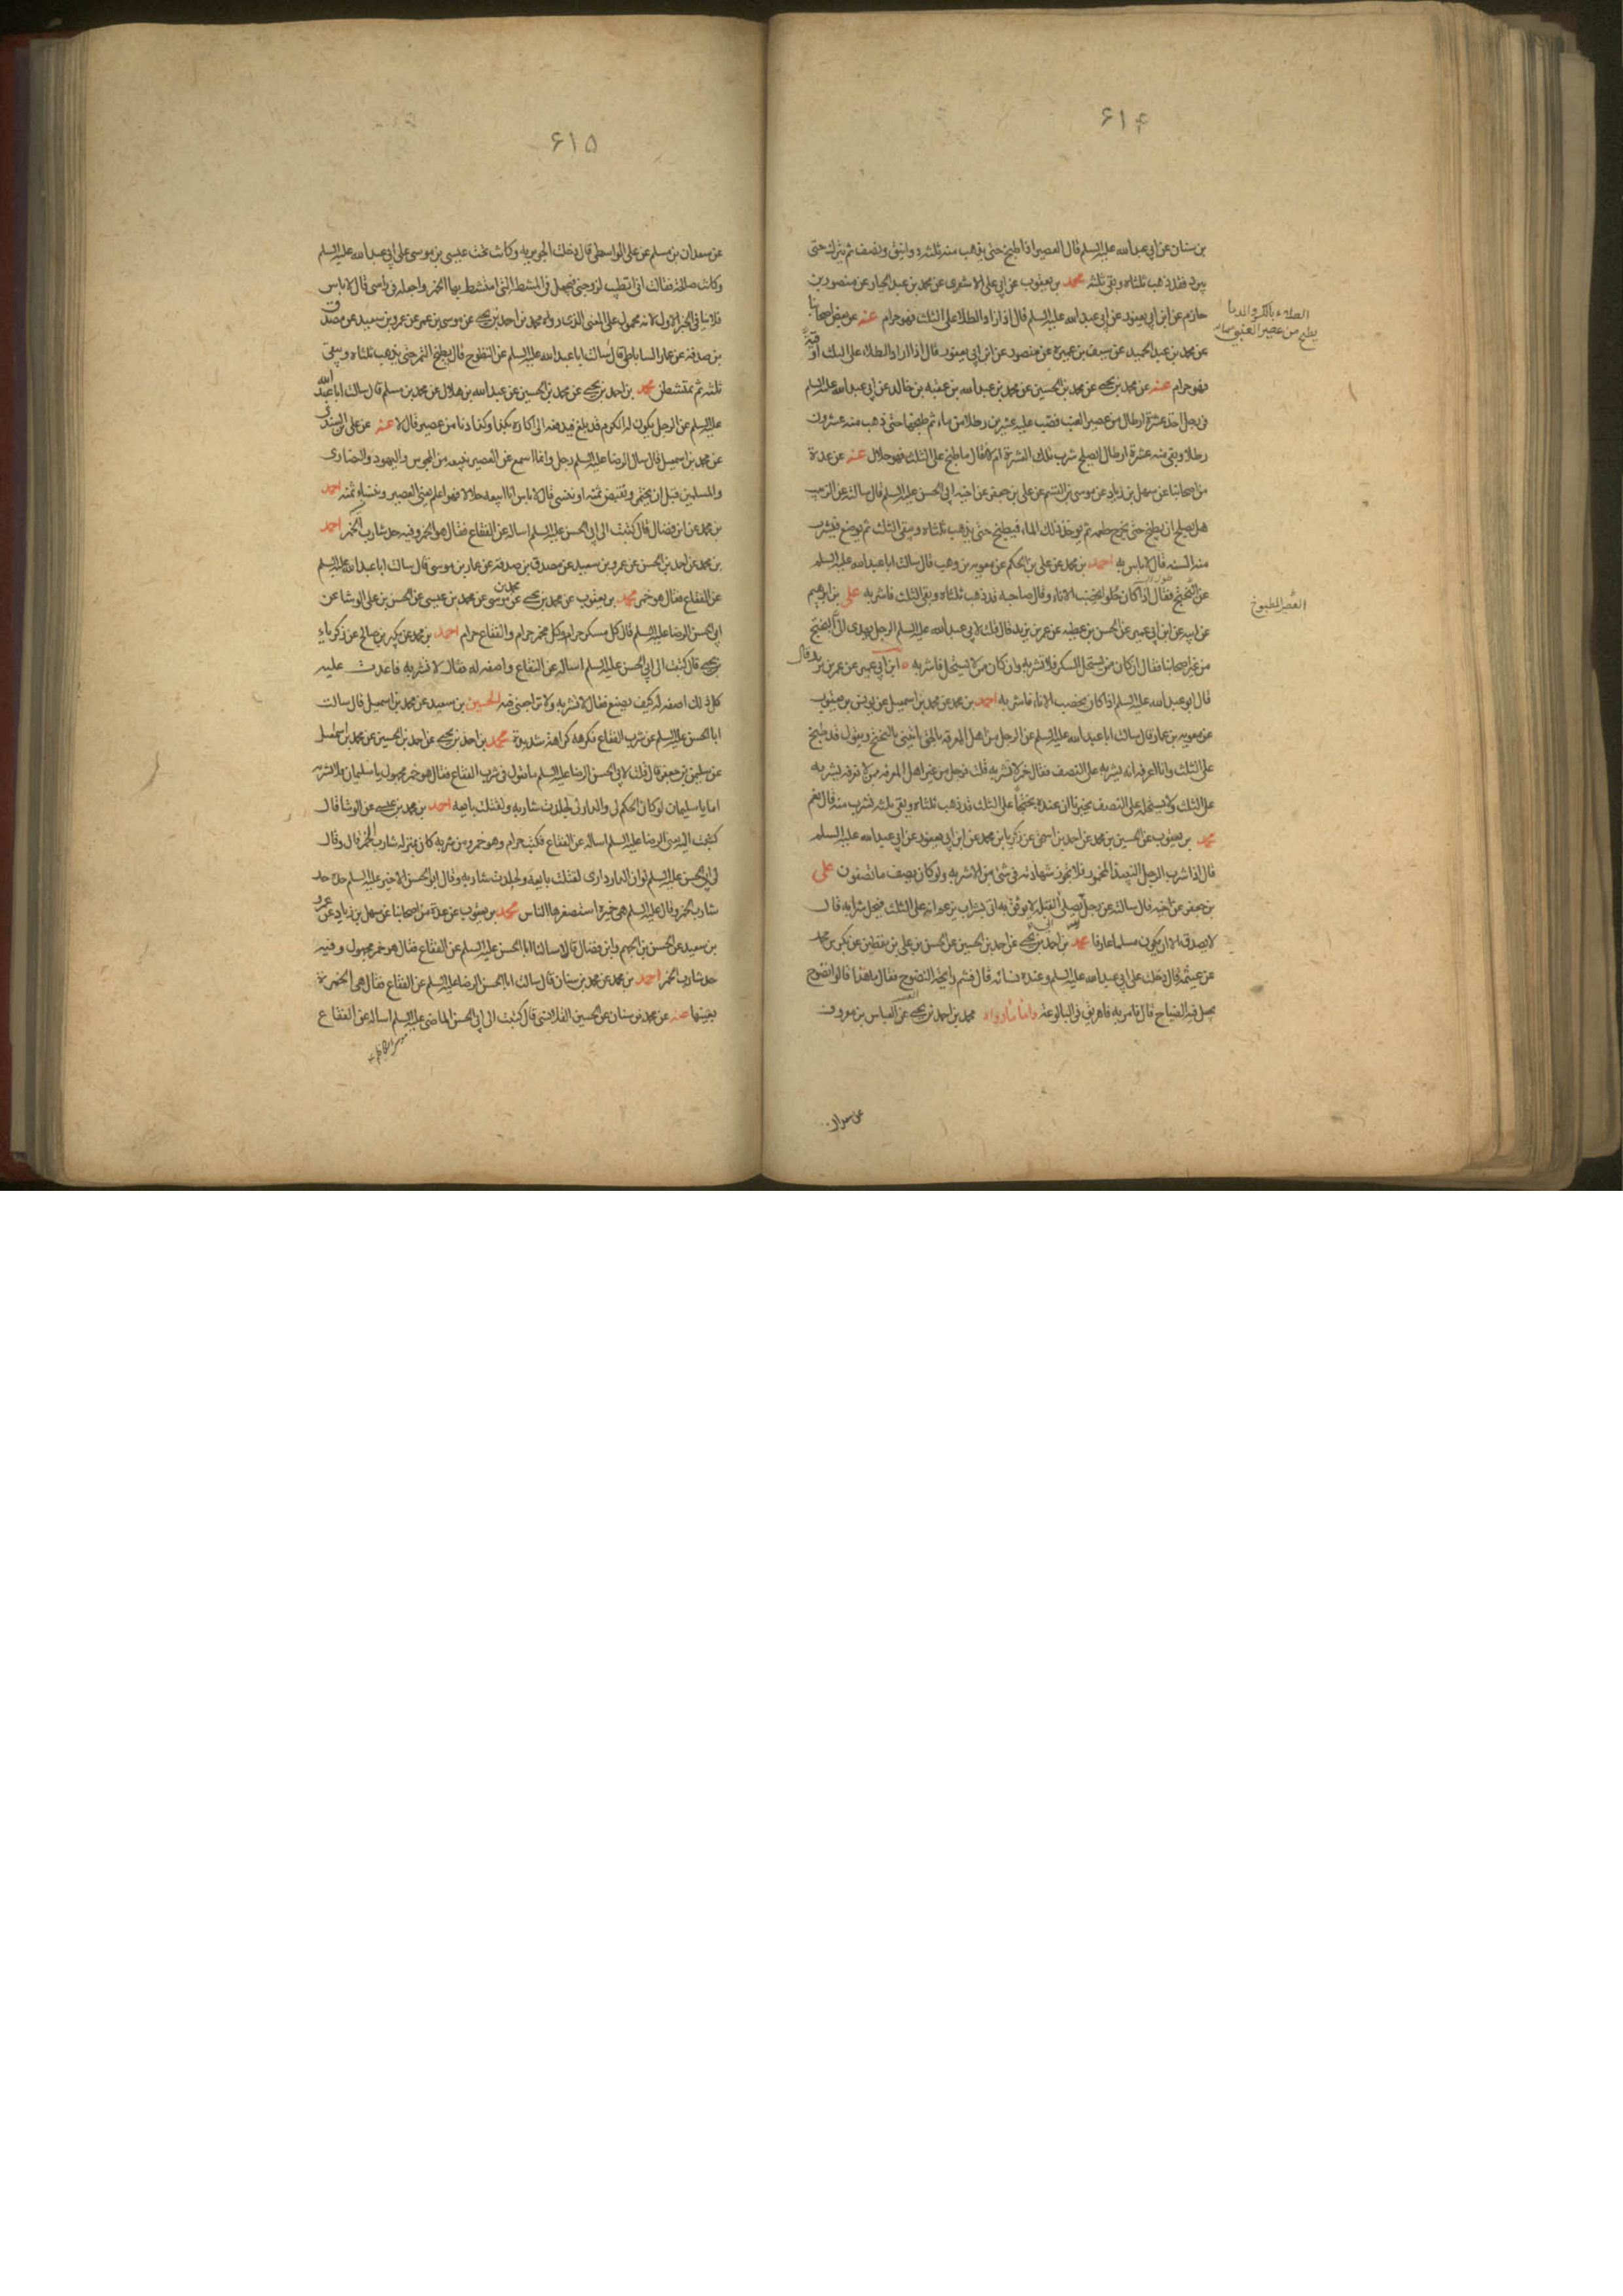 ۶۱۴
بن سنان عن ابي عبدالله عليه السلم قال العصير اذا طبخ حتى يذهب منه ثلثة دوانيق ونصف ثم يترك حتى
يبرد فقد ذهب ثلثاه وبقى ثلثه محمد بن يعقوب عن ابي على الاشعرى عن محمد بن عبد الجبار عن منصور بن
حازم عن ابن ابي يعفور عن ابي عبدالله عليه السلم قال اذا زاد الطلا على الثلث فهو حرام عنه عن بعض اصحابنا
عن محمد بن عبد الحميد عن سيف بن عميرة عن منصور عن ابن ابي يعفور قال اذا زاد الطلاء على الثلث اوقية
فهو حرام عنه عن محمد بن يحيى عن محمد بن الحسين عن محمد بن عبدالله بن عقبه بن خالد عن ابي عبدالله عليه السلم
فى رجل اخذ عشرة ارطال من عصير العنب فصب عليه عشرين رطلا من ماء ثم طبخها حتى ذهب منه عشرون
رطلا وبقى منه عشرة ارطال ايصلح شرب تلك العشرة ام لا فقال ما طبخ على الثلث فهو حلال عنه عن عدة
من اصحابنا عن سهل بن زياد عن موسى بن القسم عن على بن جعفر عن اخيه ابي الحسن عليه السلم قال سالته عن الزبيب
هل يصلح ان يطبخ حتى يخرج طعمه ثم يوخذ ذلك الماء فيطبخ حتى يذهب ثلثاه ويبقى الثلث ثم يوضع فيشرب
منه السنه قال لا باس به احمد بن محمد عن على بن الحكم عن معويه بن وهب قال سالت ابا عبدالله عليه السلم
عن البختج فقال اذا كان حلوا يخضب الاناء وقال صاحبه قد ذهب ثلثاه وبقى الثلث فاشربه على بن ابرهيم
عن ابيه عن ابن ابي عمير عن الحسن بن عطيه عن عمر بن يزيد قال قلت لابي عبدالله عليه السلم الرجل يهدى الى البختج
من غير اصحابنا فقال ان كان ممن يستحل المسكر فلا تشربه وان كان ممن لا يستحل فاشربه ابن ابي عمير عن عمر بن يزيد قال
قال ابو عبدالله عليه السلم اذا كان يخضب الاناء فاشربه احمد بن محمد عن محمد بن اسمعيل عن يونس بن يعقوب
عن معويه بن عمار قال سالت ابا عبدالله عليه السلم عن الرجل من اهل المعرفه بالحق ياتينى بالبختج ويقول قد طبخ
على الثلث وانا اعرف انه يشربه على النصف فقال خمر لا تشربه قلت فرجل من غير اهل المعرفه ممن لا نعرفه يشربه
على الثلث ولا يستحله على النصف يخبرنا ان عنده بختجا على الثلث قد ذهب ثلثاه وبقى ثلثه نشرب منه قال نعم
محمد بن يعقوب عن الحسين بن محمد عن احمد بن اسحق عن زكريا بن محمد عن ابن ابي يعفور عن ابي عبدالله عليه السلم
قال اذا شرب الرجل النبيذ المخمور فلا تجوز شهادته فى شئ من الاشربه ولو كان يصف ما تصفون على
بن جعفر عن اخيه قال سالته عن رجل يصلى للقبله لا يوثق به اتى بشراب يزعم انه على الثلث فيحل شرابه قال
لا يصدق الا ان يكون مسلما عارفا محمد بن احمد بن يحيى عن احمد بن الحسين عن الحسن بن على بن يقطين عن بكر بن محمد
عن عيثمه قال دخلت على ابي عبدالله عليه السلم وعنده نسائه قال فشم رايحة النضوح فقال ما هذا قالوا نضوح
يجعل فيه الضياح قال فامر به فاهريق فى البالوعة واما ما رواه محمد بن احمد بن يحيى عن العباس بن معروف
الطلاء بالكسر والمد ما
يطبخ من عصير العنب
العصير المطبوخ
عن سعدان
۶۱۵
عن سعدان بن مسلم عن على الواسطى قال دخلت الجويريه وكانت تحت عيسى بن موسى على ابي عبدالله عليه السلم
وكانت صالحة فقالت انى اتطيب لزوجى فنجعل فى المشطه التى امتشط بها الخمر واجعله فى راسى قال لا باس
فلا ينافى الخبر الاول لانه محمول على المعنى الذى رواه محمد بن احمد بن يحيى عن موسى بن عمر عن عمرو بن سعيد عن مصدق
بن صدقه عن عمار الساباطى قال سالت ابا عبدالله عليه السلم عن النضوح قال يطبخ التمر حتى يذهب ثلثاه ويبقى
ثلثه ثم يمتشطن محمد بن احمد بن يحيى عن محمد بن الحسين عن عبدالله بن هلال عن محمد بن مسلم قال سالت ابا عبدالله
عليه السلم عن الرجل يكون له الكرم قد بلغ فيدفعه الى اكاره بكذا وكذا دنا من عصير قال لا عنه عن على السندى
عن محمد بن اسمعيل قال سال الرضا عليه السلم رجل وانا اسمع عن العصير يبيعه من المجوس واليهود والنصارى
والمسلمين قبل ان يختمر ويقبض ثمنه او ينسى قال لا باس اذا بيعه حلالا فهو اعلم يعنى العصير وينسئ ثمنه احمد
بن محمد عن ابن فضال قال كتبت الى ابي الحسن عليه السلم اساله عن الفقاع فقال هو الخمر وفيه حد شارب الخمر احمد
بن محمد عن احمد بن الحسن عن عمرو بن سعيد عن مصدق بن صدقه عن عمار بن موسى قال سالت ابا عبدالله عليه السلم
عن الفقاع فقال هو خمر محمد بن يعقوب عن محمد بن يحيى عن محمد بن موسى عن محمد بن عيسى عن الحسن بن على الوشا عن
ابي الحسن الرضا عليه السلم قال كل مسكر حرام وكل مخمر حرام والفقاع حرام احمد بن محمد عن بكر بن صالح عن زكرياء
بن يحيى قال كتبت الى ابي الحسن عليه السلم اساله عن الفقاع واصفه له فقال لا تشربه فاعدت عليه
كل ذلك اصفه له كيف يصنع فقال لا تشربه ولا تراجعنى فيه الحسين بن سعيد عن محمد بن اسمعيل قال سالت
ابا الحسن عليه السلم عن شرب الفقاع فكرهه كراهة شديدة محمد بن احمد بن يحيى عن احمد بن الحسين عن محمد بن اسمعيل
عن سليمن بن جعفر قال قلت لابي الحسن الرضا عليه السلم ما تقول فى شرب الفقاع فقال هو خمر مجهول يا سليمان فلا تشربه
اما يا سليمان لو كان الحكم لى والدار لى لجلدت شاربه ولقتلت بايعه احمد بن محمد بن عيسى عن الوشا قال
كتبت اليه يعنى الرضا عليه السلم اساله عن الفقاع فكتب حرام وهو خمر ومن شربه كان بمنزله شارب الخمر قال وقال
لى ابو الحسن عليه السلم لو ان الدار دارى لقتلت بايعه ولجلدت شاربه وقال ابو الحسن الاخير عليه السلم حده حد
شارب الخمر وقال عليه السلم هى خميرة استصغرها الناس محمد بن يعقوب عن عدة من اصحابنا عن سهل بن زياد عن عمرو
بن سعيد عن الحسن بن الجهم وابن فضال قالا سالنا ابا الحسن عليه السلم عن الفقاع فقال هو خمر مجهول وفيه
حد شارب الخمر احمد بن محمد عن محمد بن سنان قال سالت ابا الحسن الرضا عليه السلم عن الفقاع فقال هى الخمرة
بعينها عنه عن محمد بن سنان عن الحسين القلانسى قال كتبت الى ابي الحسن الماضى عليه السلم اساله عن الفقاع